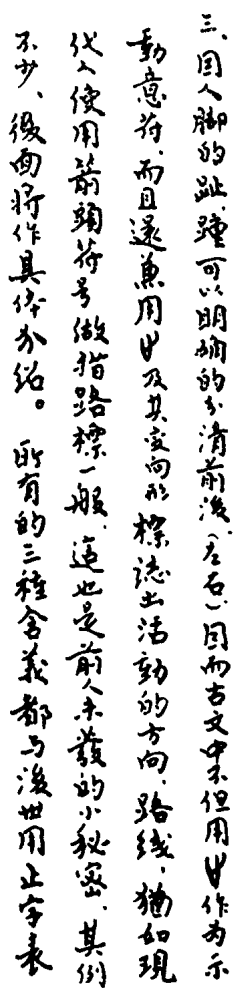 三、因人脚的趾、踵可以明确的分清前後、(左右)、因而古文中不但用𠂇作为示
動意符、而且還兼用及其变向形標誌出活動的方向、路线，猶如現
代人使用箭頭符号做指路標一般、這也是前人未發的小秘密、其例
不少、後面將作具体介紹。 所有的三種含義都与後世用止字表